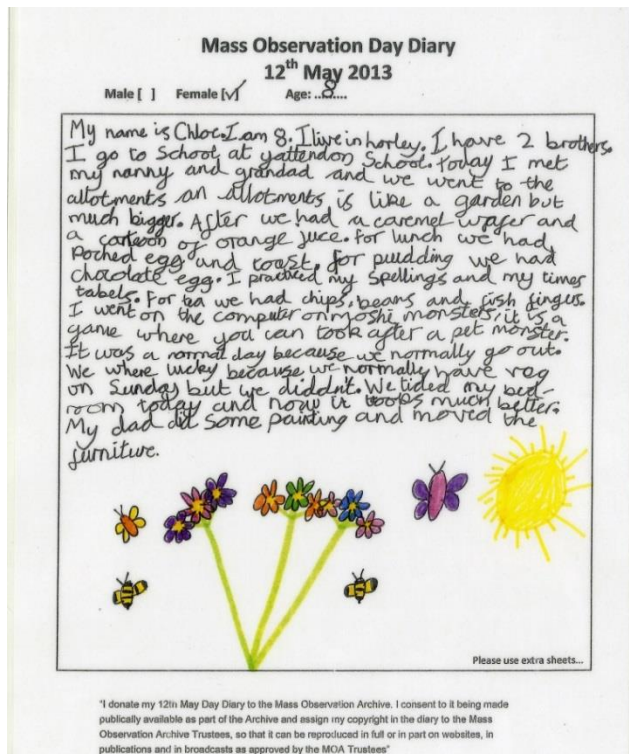 Mass Observation Day Diary
12th May 2013
Male [ ] Female [√] Age: ..8....
My name is Chloe. I am 8. I live in horley. I have 2 brothers.
I go to School at yattendon School. Today I met
my nanny and grandad and we went to the
allotments an allotments is like a garden but
much bigger. After we had a caremel wafer and
a cartoon of orange juce. for lunch we had
Poched egg and toast. for pudding we had
chocolate egg. I practiced my Spellings and my times
tabels. For tea we had chips, beans and fish fingers.
I went on the computer on moshi monsters, it is a
game where you can look after a pet monster.
It was a normal day because we normally go out.
We where lucky because we normally have veg
on Sunday but we diddn't. We tided my bed-
room today and now it looks much better.
My dad did some painting and moved the
furniture.
Please use extra sheets...
"I donate my 12th May Day Diary to the Mass Observation Archive. I consent to it being made
publically available as part of the Archive and assign my copyright in the diary to the Mass
Observation Archive Trustees, so that it can be reproduced in full or in part on websites, in
publications and in broadcasts as approved by the MOA Trustees"